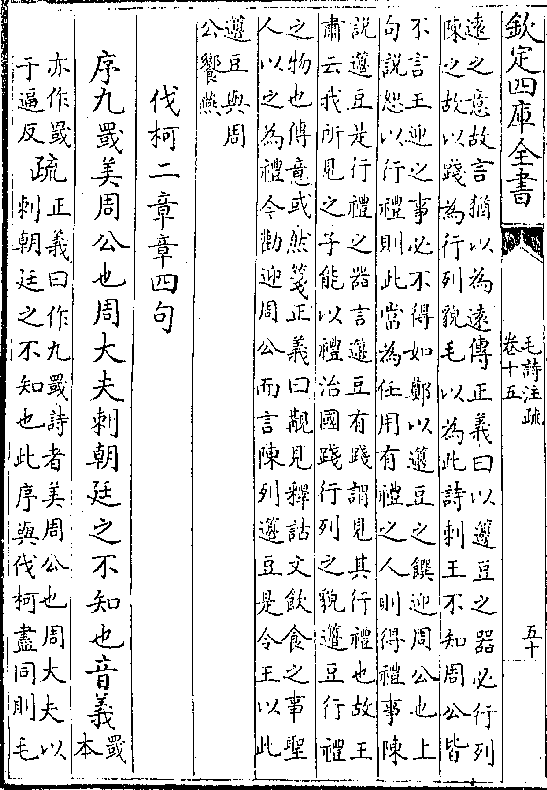 欽定四庫全書
毛詩注疏
卷十五
五十
遠之意故言猶以為遠傳正義曰以籩豆之器必行列
陳之故以踐為行列貌毛以為此詩刺王不知周公皆
不言王迎之事必不得如鄭以籩豆之饌迎周公也上
句説恕以行禮則此當為任用有禮之人則得禮事陳
説籩豆是行禮之器言籩豆有踐謂見其行禮也故王
肅云我所見之子能以禮治國踐行列之貌籩豆行禮
之物也傳意或然箋正義曰覯見釋詁文飲食之事聖
人以之為禮今勸迎周公而言陳列籩豆是令王以此
籩豆與周
公饗燕
伐柯二章章四句
序九罭美周公也周大夫刺朝廷之不知也音義罭
本
亦作罭
于逼反
疏
正義曰作九罭詩者美周公也周大夫以
刺朝廷之不知也此序與伐柯盡同則毛